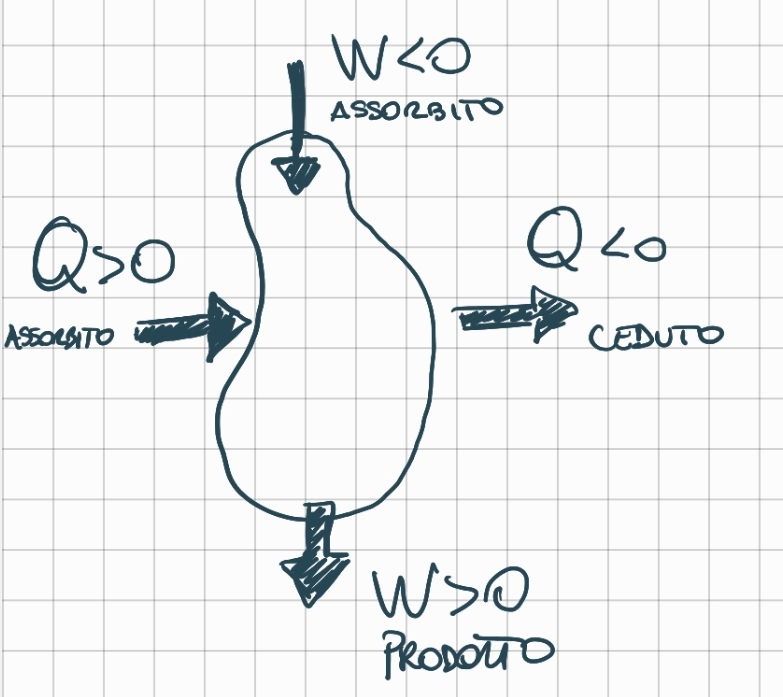 W<0
ASSORBITO
Q>0
ASSORBITO
Q<0
CEDUTO
W>0
PRODOTTO